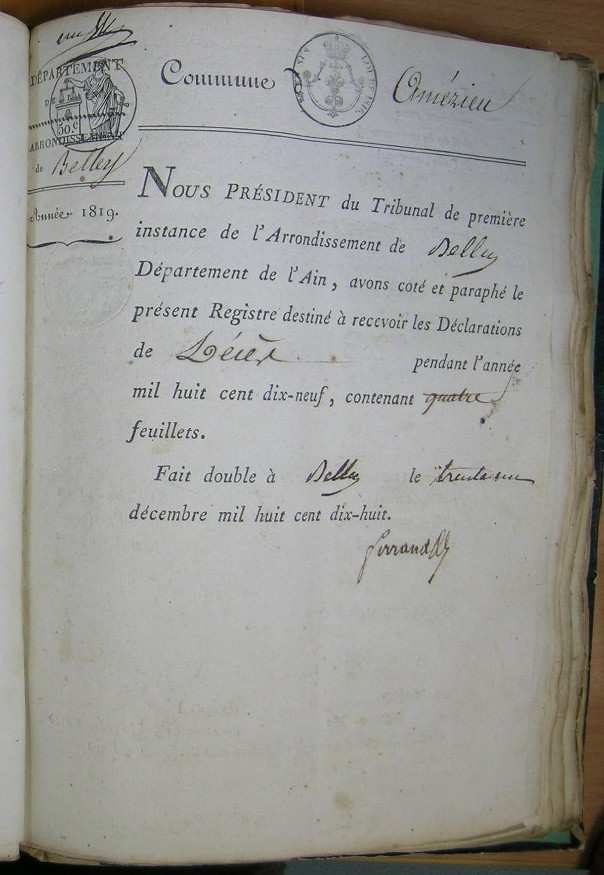 DÉPARTEMENT
DE
50.c
ARRONDISSEMENT
de Belley
Année 1819.
Commune Amézieu
NOUS PRÉSIDENT du Tribunal de première
instance de l'Arrondissement de Belley
Département de l'Ain, avons coté et paraphé le
présent Registre destiné à recevoir les Déclarations
de Décès pendant l'année
mil huit cent dix-neuf, contenant quatre
feuillets.
Fait double à Belley le trente un
décembre mil huit cent dix-huit.